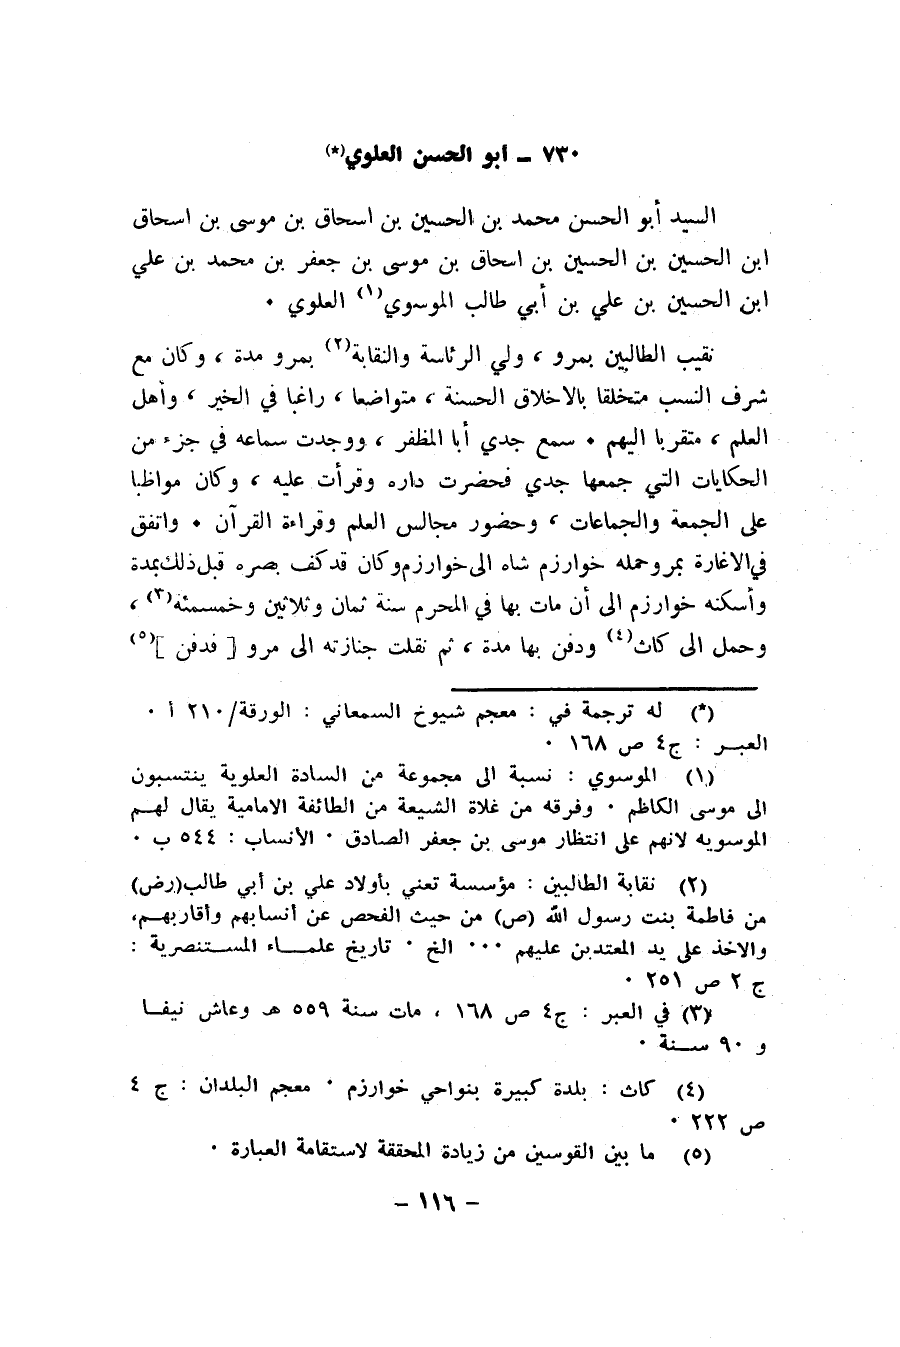 ٧٣٠ ــ أبو الحسن العلوي(*)
السيد أبو الحسن محمد بن الحسين بن اسحاق بن موسى بن اسحاق
ابن الحسين بن الحسين بن اسحاق بن موسى بن جعفر بن محمد بن علي
ابن الحسين بن علي بن أبي طالب الموسوي(١) العلوي ٠
نقيب الطالبين بمرو ، ولي الرئاسة والنقابة(٢) بمرو مدة ، وكان مع
شرف النسب متخلقا بالاخلاق الحسنة ، متواضعا ، راغبا في الخير ، وأهل
العلم ، متقربا اليهم ٠ سمع جدي أبا المظفر ، ووجدت سماعه في جزء من
الحكايات التي جمعها جدي فحضرت داره وقرأت عليه ، وكان مواظبا
على الجمعة والجماعات ، وحضور مجالس العلم وقراءة القرآن ٠ واتفق
في الاغارة بمرو حمله خوارزم شاه الى خوارزم وكان قد كف بصره قبل ذلك بمدة
وأسكنه خوارزم الى أن مات بها في المحرم سنة ثمان وثلاثين وخمسمئة(٣) ،
وحمل الى كاث(٤) ودفن بها مدة ، ثم نقلت جنازته الى مرو [ فدفن ](٥)
(*) له ترجمة في : معجم شيوخ السمعاني : الورقة/٢١٠ أ ٠
العبـر : ج٤ ص ١٦٨ ٠
(١) الموسوي : نسبة الى مجموعة من السادة العلوية ينتسبون
الى موسى الكاظم ٠ وفرقه من غلاة الشيعة من الطائفة الامامية يقال لهـم
الموسويه لانهم على انتظار موسى بن جعفر الصادق ٠ الأنساب : ٥٤٤ ب ٠
(٢) نقابة الطالبين : مؤسسة تعني بأولاد علي بن أبي طالب(رض)
من فاطمة بنت رسول الله (ص) من حيث الفحص عن أنسابهم وأقاربهـم،
والاخذ على يد المعتدين عليهم ٠٠٠ الخ ٠ تاريخ علمـــاء المســتنصرية :
ج ٢ ص ٢٥١ ٠
(٣) في العبر : ج٤ ص ١٦٨ ، مات سنة ٥٥٩ هـ وعاش نيفـا
و ٩٠ ســنة ٠
(٤) كاث : بلدة كبيرة بنواحي خوارزم ٠ معجم البلدان : ج ٤
ص ٢٢٢ ٠
(٥) ما بين القوسين من زيادة المحققة لاستقامة العبارة ٠
– ١١٦ –